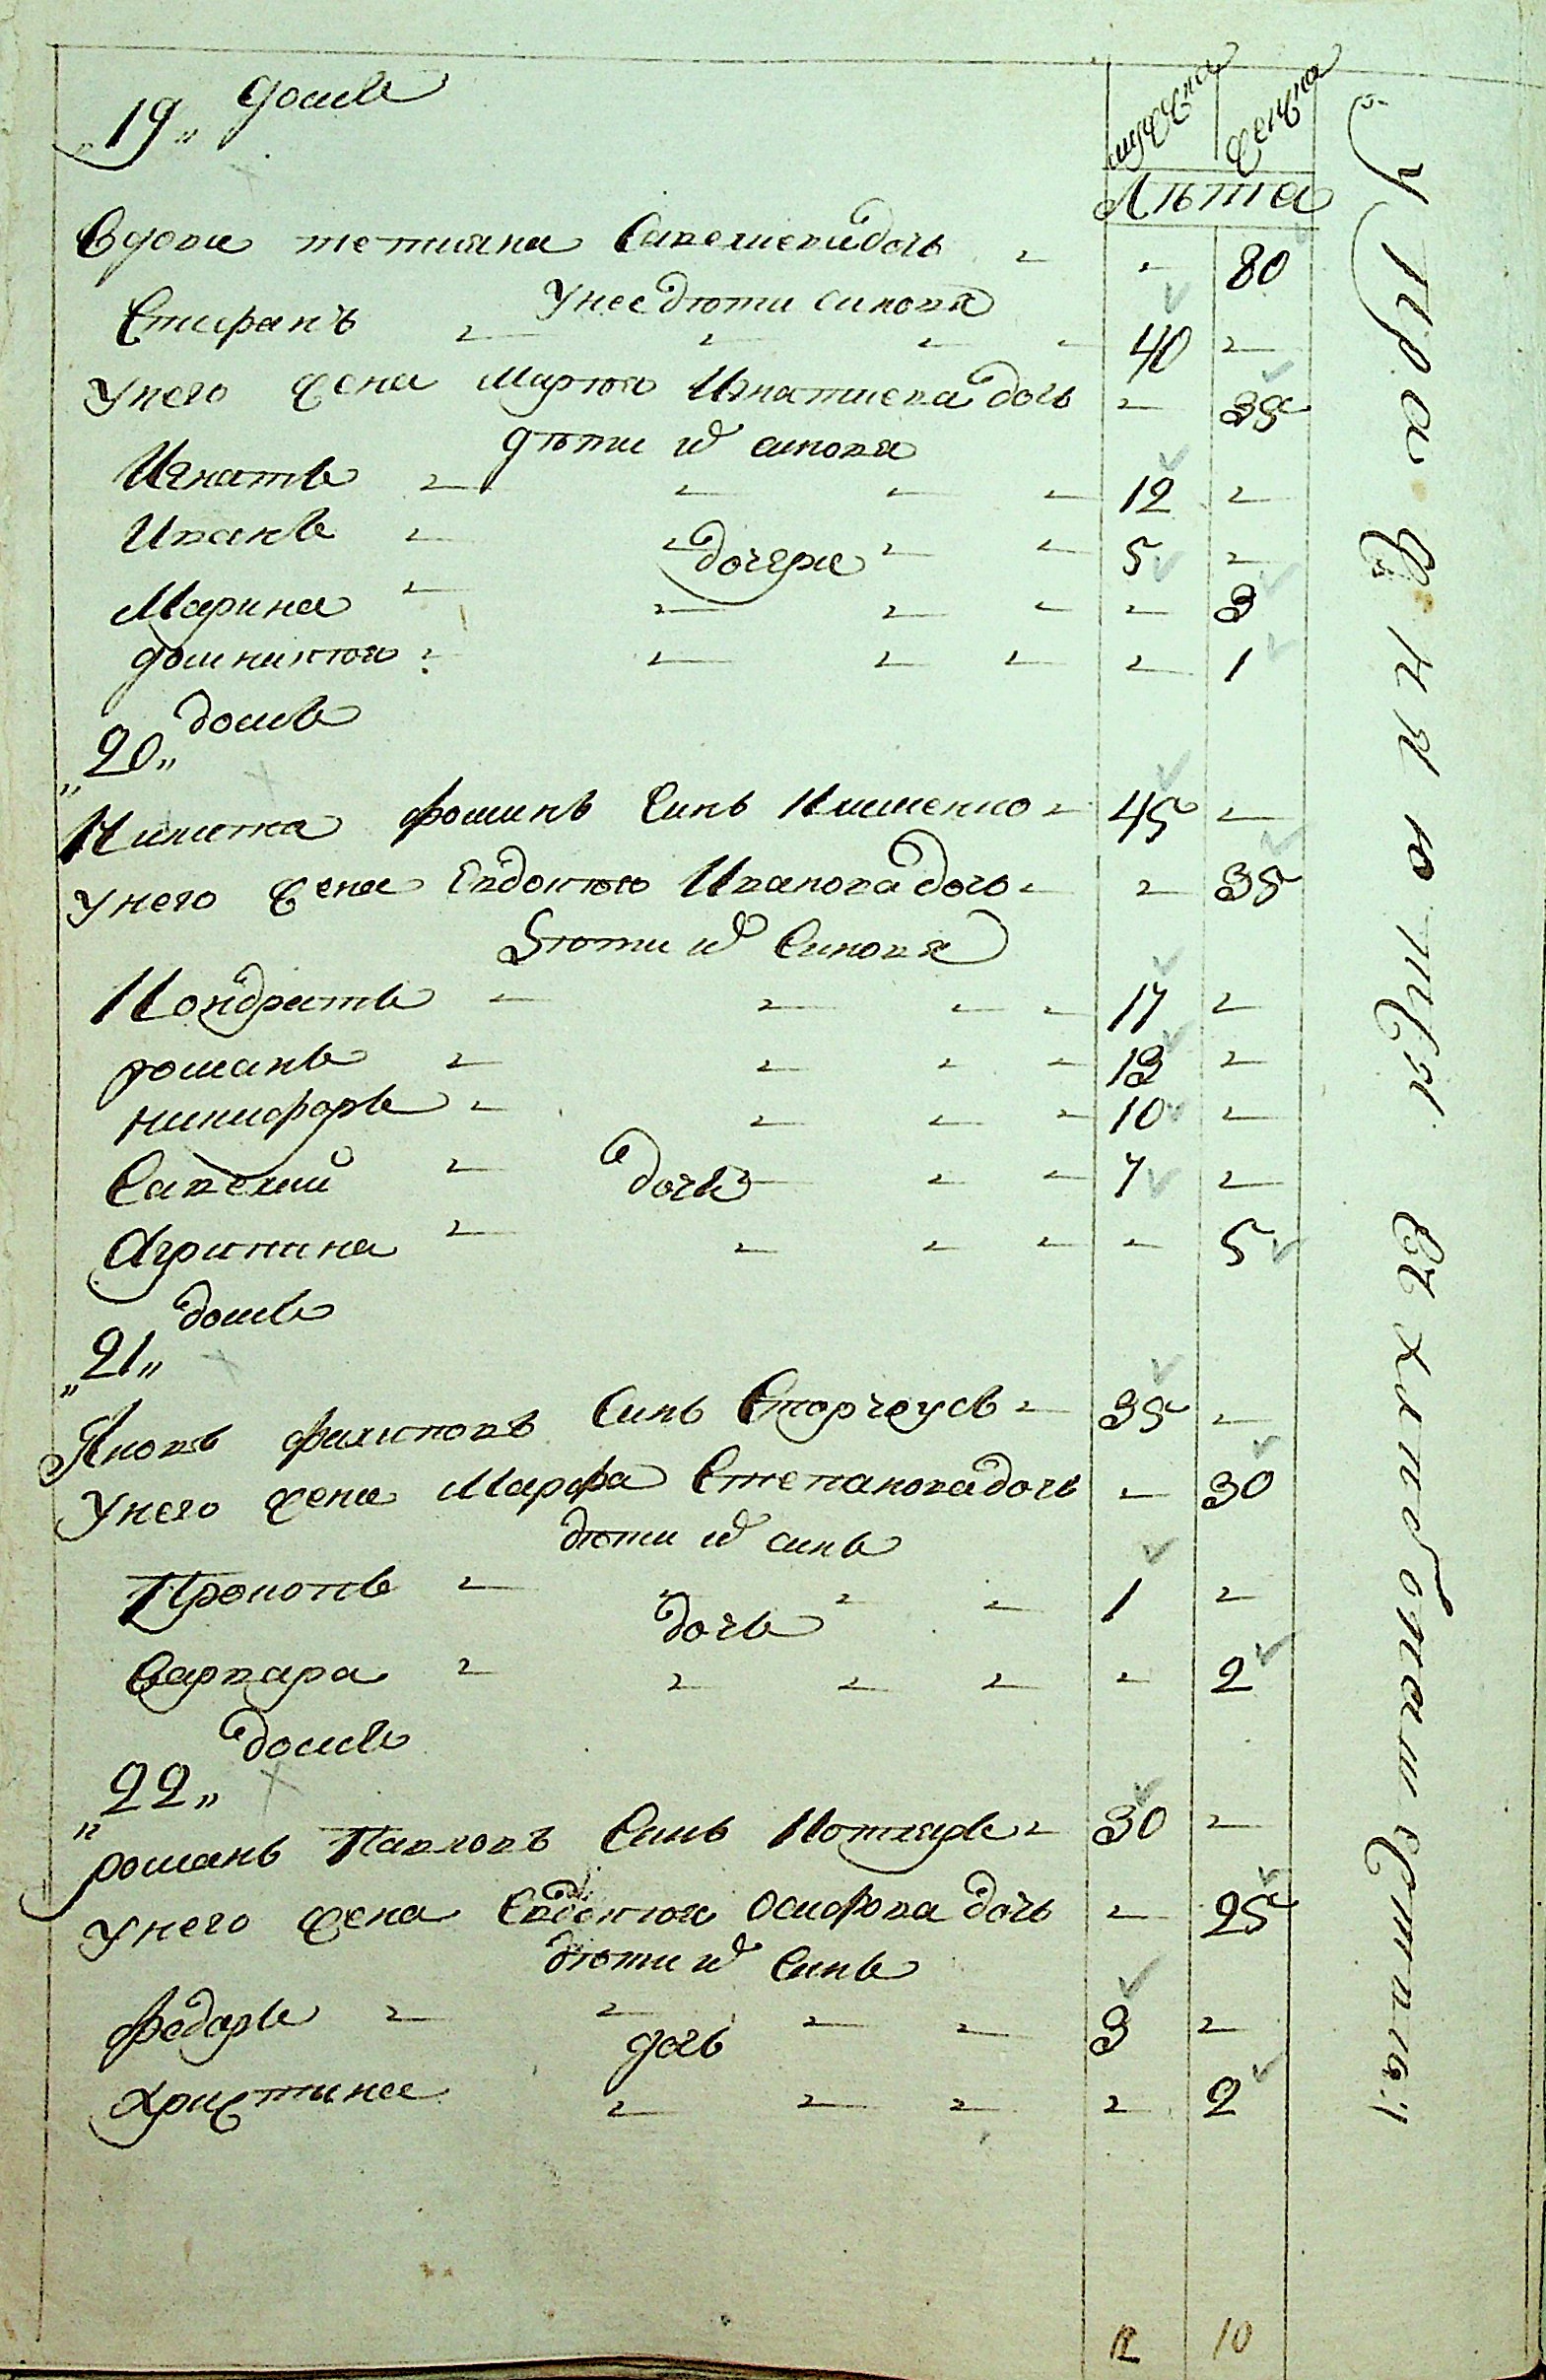 „19„ домъ
мужеска женска
Лѣта
Вдова тетияна Савелиева дочь 80
У нее дѣти синовя
Стифанъ 40
У него жена Марѣя Игнатиева дочь 35
дѣти их синовя
Игнатъ 12
Иванъ 5
дочери
Марина 3
домникѣя 1
„20„ домъ
Никита фоминъ Синъ Клименко 45
У него жена Евдокѣя Иванова дочь 35
Дѣти их Синовя
Кондратъ 17
романъ 13
никифоръ 10
Савелий 7
дочь
Агрипина 5
„21„ домъ
Яковъ филиповъ Синъ Сторчеусъ 35
У него жена Марфа Степанова дочь 30
дѣти их синъ
Прокопъ 1
дочь
Варвара 2
„22„ домъ
романъ Павловъ Синъ Котляръ 30
У него жена Евдокѣя Осифова дочь 25
дѣти их Синъ
федоръ 3
дочь
Христина 2
12 10